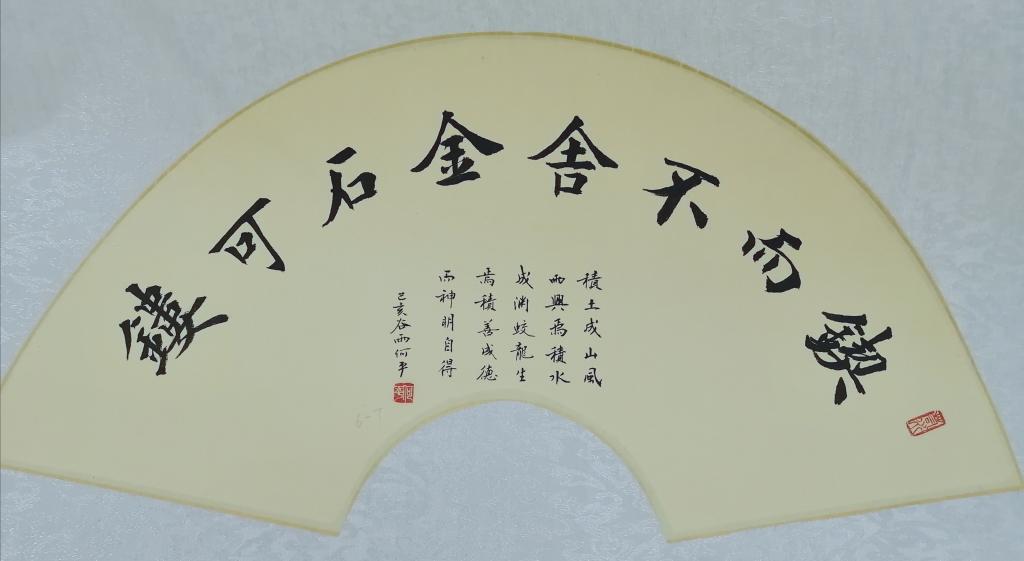 鍥而不舍金石可鏤
積土成山風
雨興焉積水
成渊蛟龍生
焉積善成德
而神明自得
己亥谷雨何平